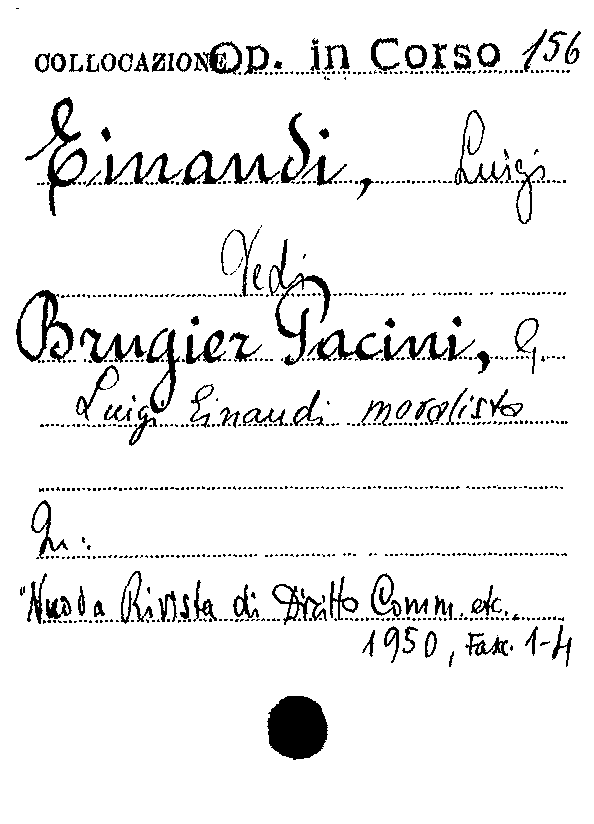 COLLOCAZIONE Op. in Corso 156
Einaudi, Luigi
Vedi
Brugier Pacini, G.
Luigi Einaudi moralista
In:
"Nuova Rivista di Diritto Comm. etc.
1950, Fasc. 1-4